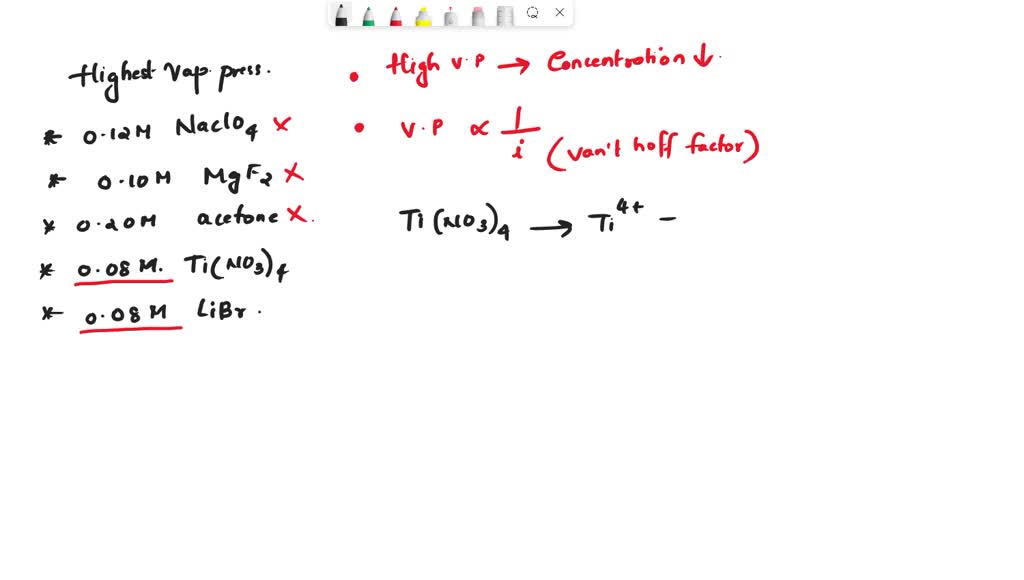 Highest Vap. press.
* 0.12M NaClO4 ×
* 0.10M MgF2 ×
* 0.20M acetone ×.
* 0.08M. Ti(NO3)4
* 0.08M LiBr.
• High V.P → Concentration ↓.
• V.P ∝ 1/i (van't hoff factor)
Ti(NO3)4 → Ti4+ –